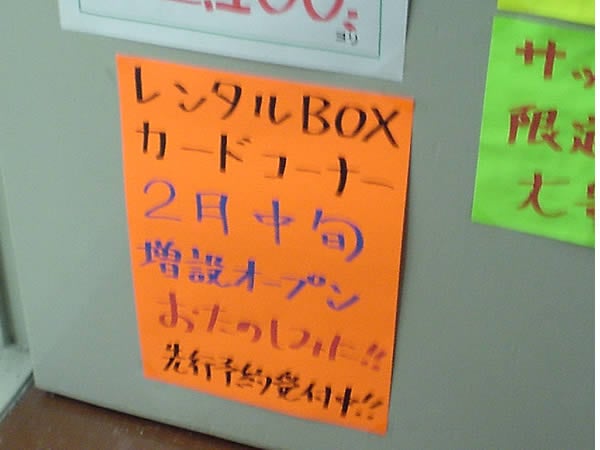 レンタルBOX
カードコーナー
2月中旬
増設オープン
おたのしみに!!
先行予約受付中!!
より
サッ
限